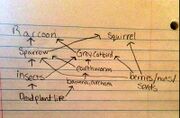 Raccoon Squirrel
Sparrow Grey catbird
insects earthworm
bacteria, archaea berries/nuts/
Dead plant life